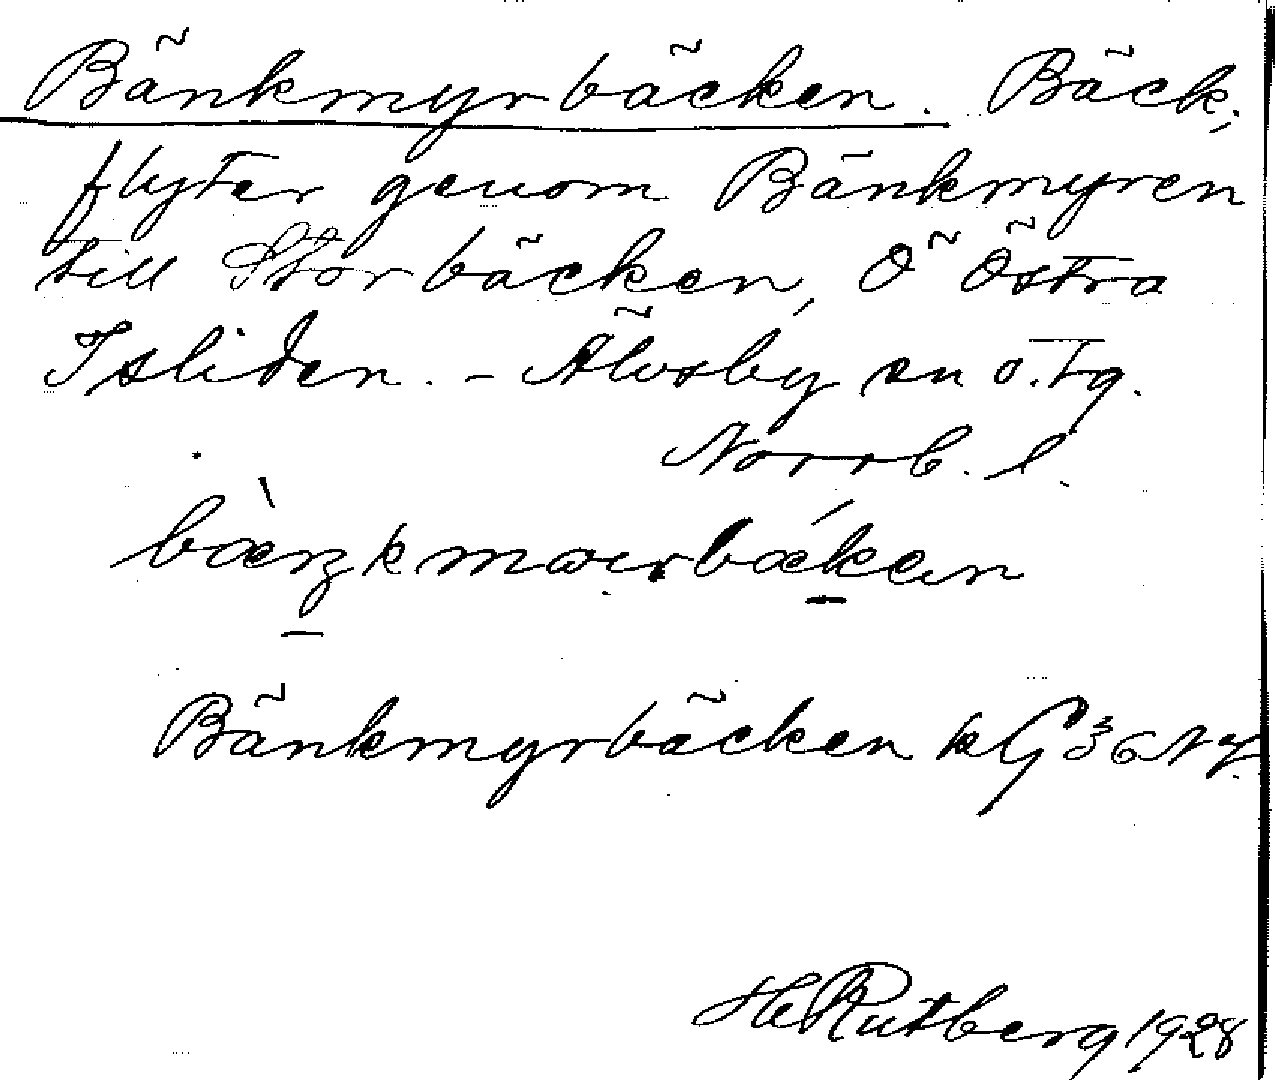 Bänkmyrbäcken. Bäck,
flyter genom Bänkmyren
till Storbäcken, Ö Östra
Isliden. - Älvsby sn o. tg.
Norrb. l.
Bänkmyrbäcken kG 36 NV
H Rutberg 1928